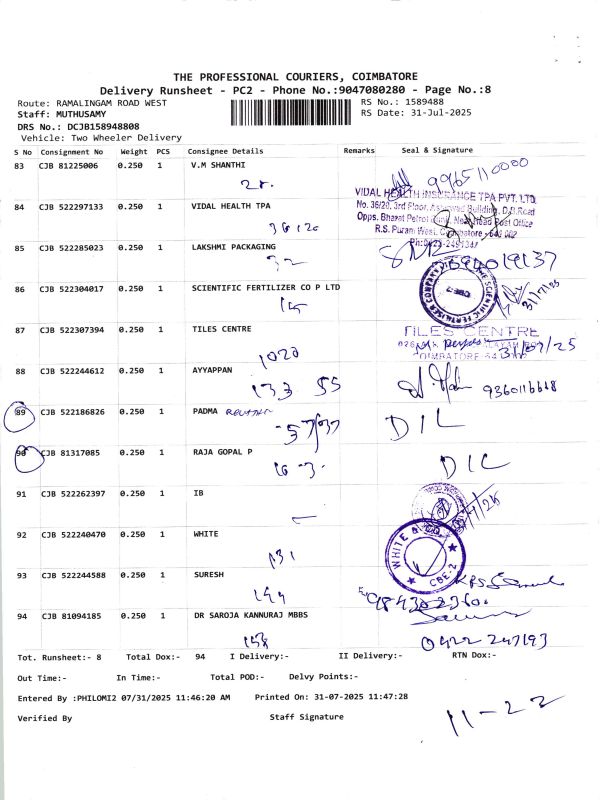 THE PROFESSIONAL COURIERS, COIMBATORE
Delivery Runsheet - PC2 - Phone No.:9047080280 - Page No.:8
Route: RAMALINGAM ROAD WEST
RS No.: 1589488
Staff: MUTHUSAMY
RS Date: 31-Jul-2025
DRS No.: DCJB158948808
Vehicle: Two Wheeler Delivery
S No Consignment No Weight PCS Consignee Details Remarks Seal & Signature
83 CJB 81225006 0.250 1 V.M SHANTHI
9965110000
84 CJB 522297133 0.250 1 VIDAL HEALTH TPA
VIDAL HEALTH INSURANCE TPA PVT. LTD.
No. 36/20, 3rd Floor, Building, D.B.Road
Opps. Bharat Petrol Bunk, Near Head Post Office
R.S. Puram West, Coimbatore - 641 002
85 CJB 522285023 0.250 1 LAKSHMI PACKAGING
32
86 CJB 522304017 0.250 1 SCIENTIFIC FERTILIZER CO P LTD
87 CJB 522307394 0.250 1 TILES CENTRE
1020
TILES CENTRE
COIMBATORE-64
31/07/25
88 CJB 522244612 0.250 1 AYYAPPAN
133 55
9360116618
89 CJB 522186826 0.250 1 PADMA
57/37
D I L
90 CJB 81317085 0.250 1 RAJA GOPAL P
D I L
91 CJB 522262397 0.250 1 IB
92 CJB 522240470 0.250 1 WHITE
131
WHITE & CO
CBE-2
93 CJB 522244588 0.250 1 SURESH
94 CJB 81094185 0.250 1 DR SAROJA KANNURAJ MBBS
158
0422 247193
Tot. Runsheet:- 8 Total Dox:- 94 I Delivery:- II Delivery:- RTN Dox:-
Out Time:- In Time:- Total POD:- Delvy Points:-
Entered By :PHILOMI2 07/31/2025 11:46:20 AM Printed On: 31-07-2025 11:47:28
Verified By Staff Signature
11-22